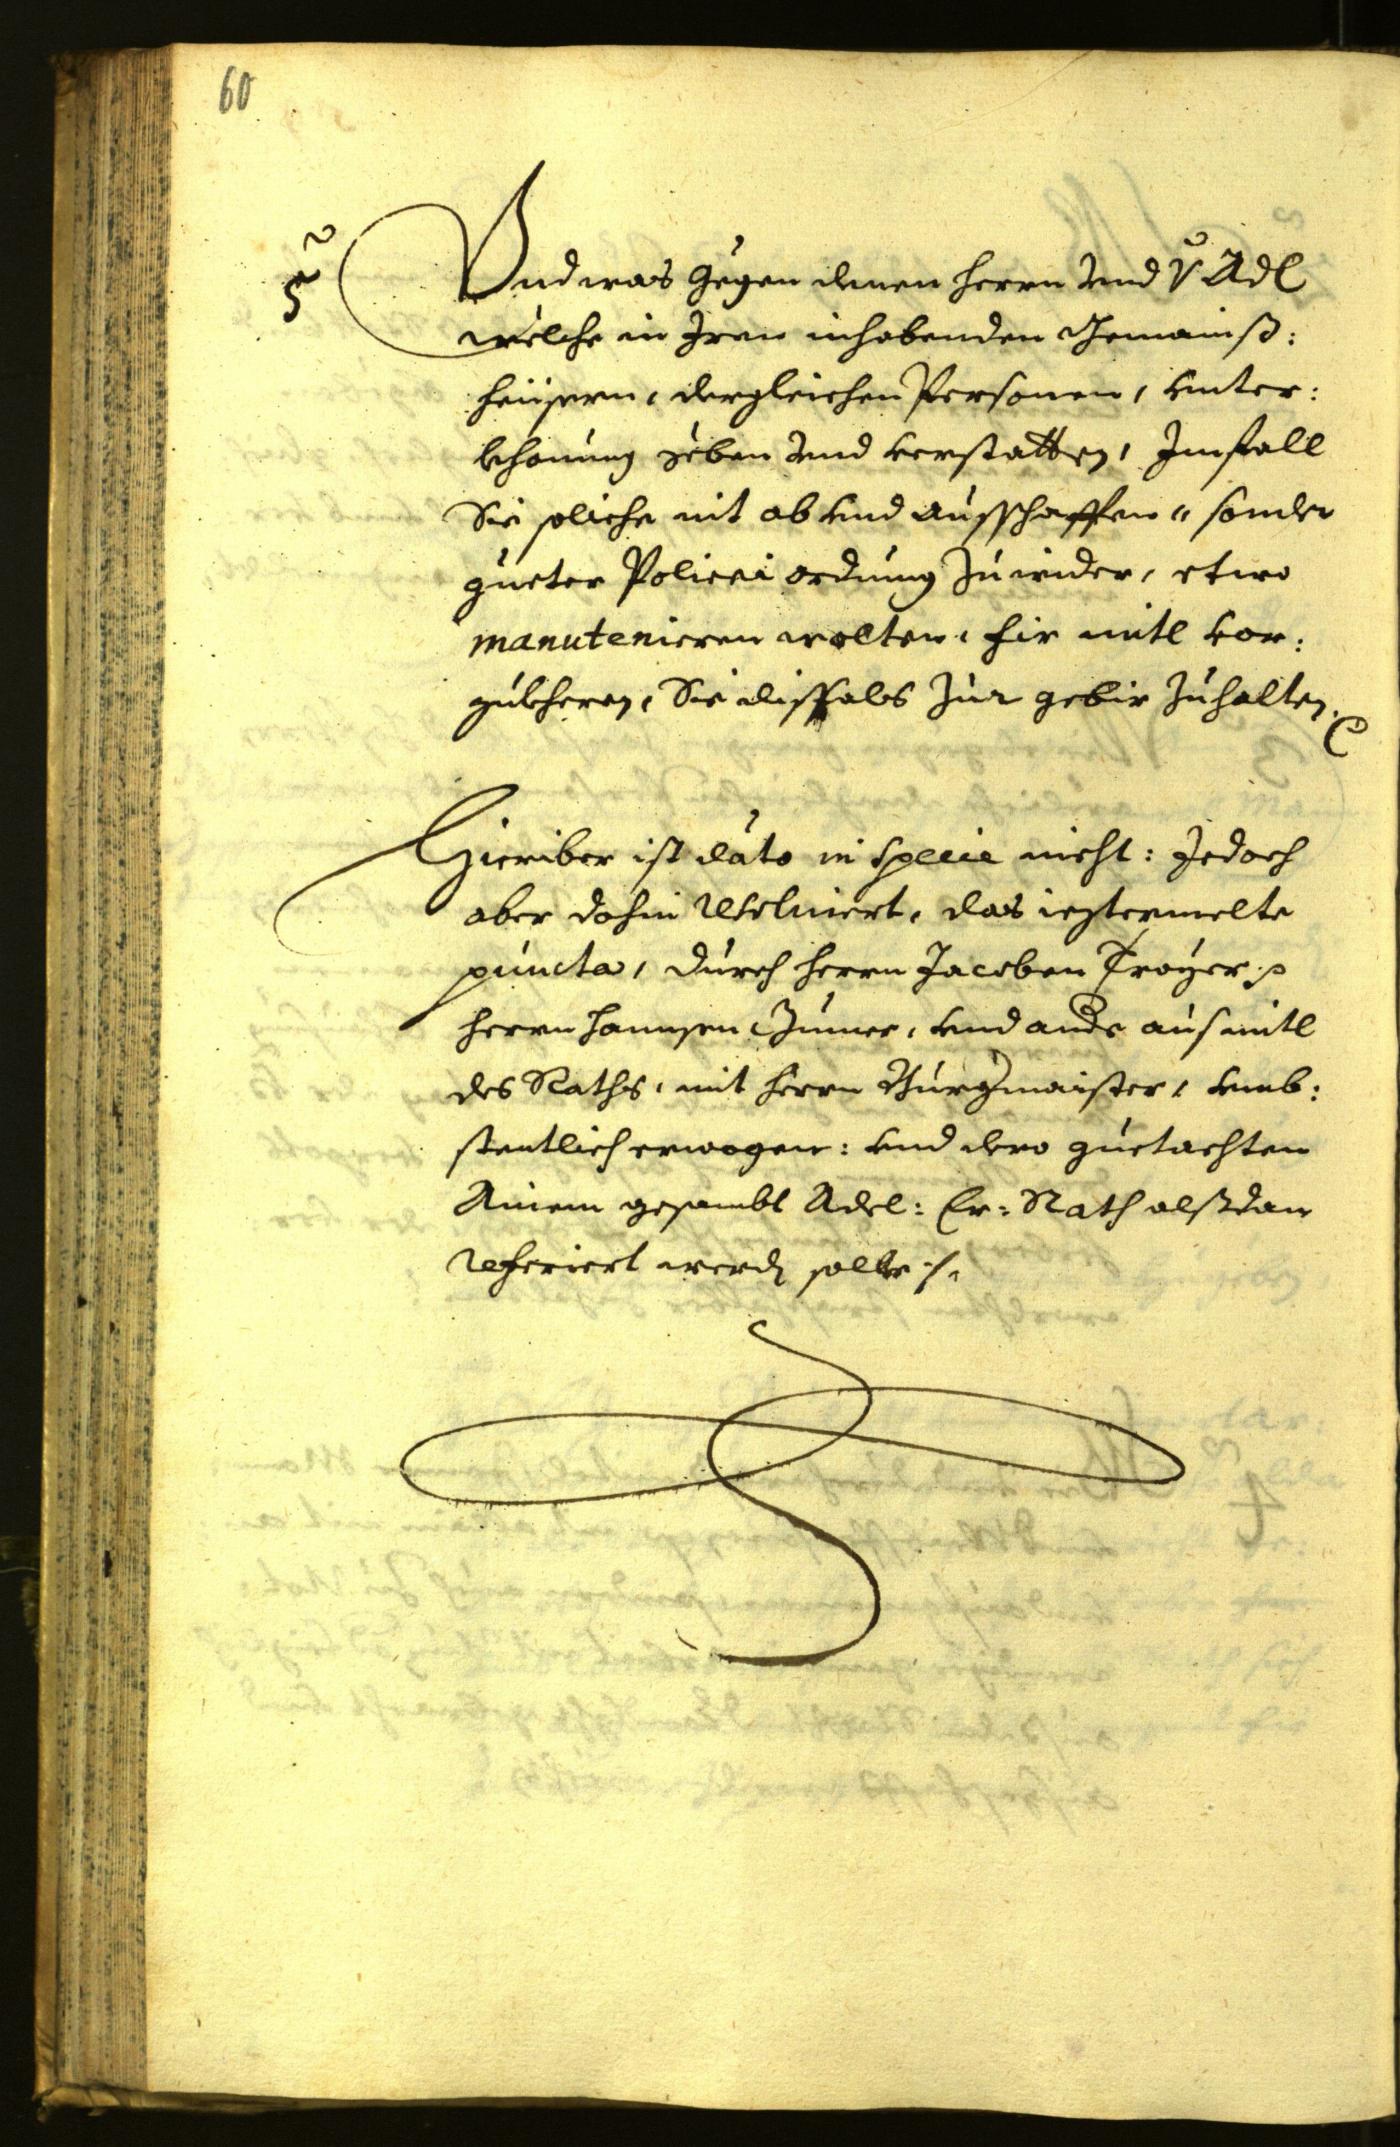 60
5
Und was gegen denen herrn und v Adl
welche in Iren inhabenden Gemainß:
heüsern, dergleichen Personen, unter:
khonung geben und verstatten, Imfall
Sie soliche nit ab und ausschaffen, sonder
gueter Policei ordnung zuwider, etwo
manutenieren wolten, für mitl vor:
zukheren, Sie dissfals zur gebir zuhalten.
Hieriber ist dato in specie nicht: Jedoch
aber dahin resolviert, das ieztermelte
puncta, durch herrn Jacoben Troÿer
herrn Hannsen, und andre aus mitl
des Raths, mit herrn Burgmaister, umb:
stentlich erwogen: und dero guetachten
Ainem gesambt Adel: Er: Rath alßdan
referiert werden solle